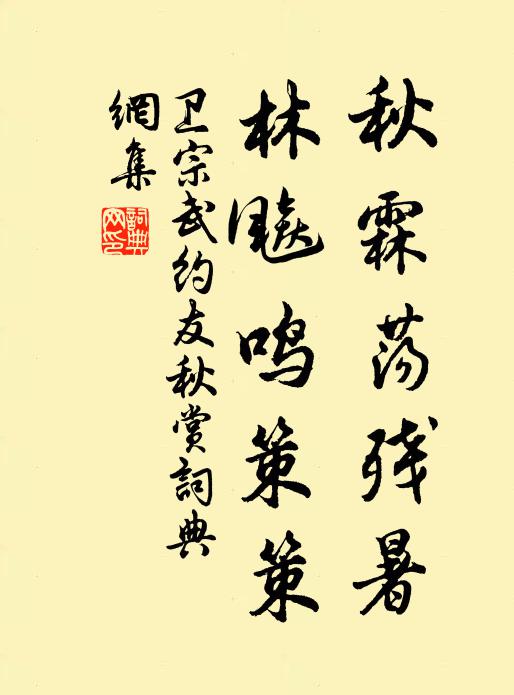 秋霖荡残暑
林飚鸣策策
卫宗武约友秋赏词典
網集
詞典網印